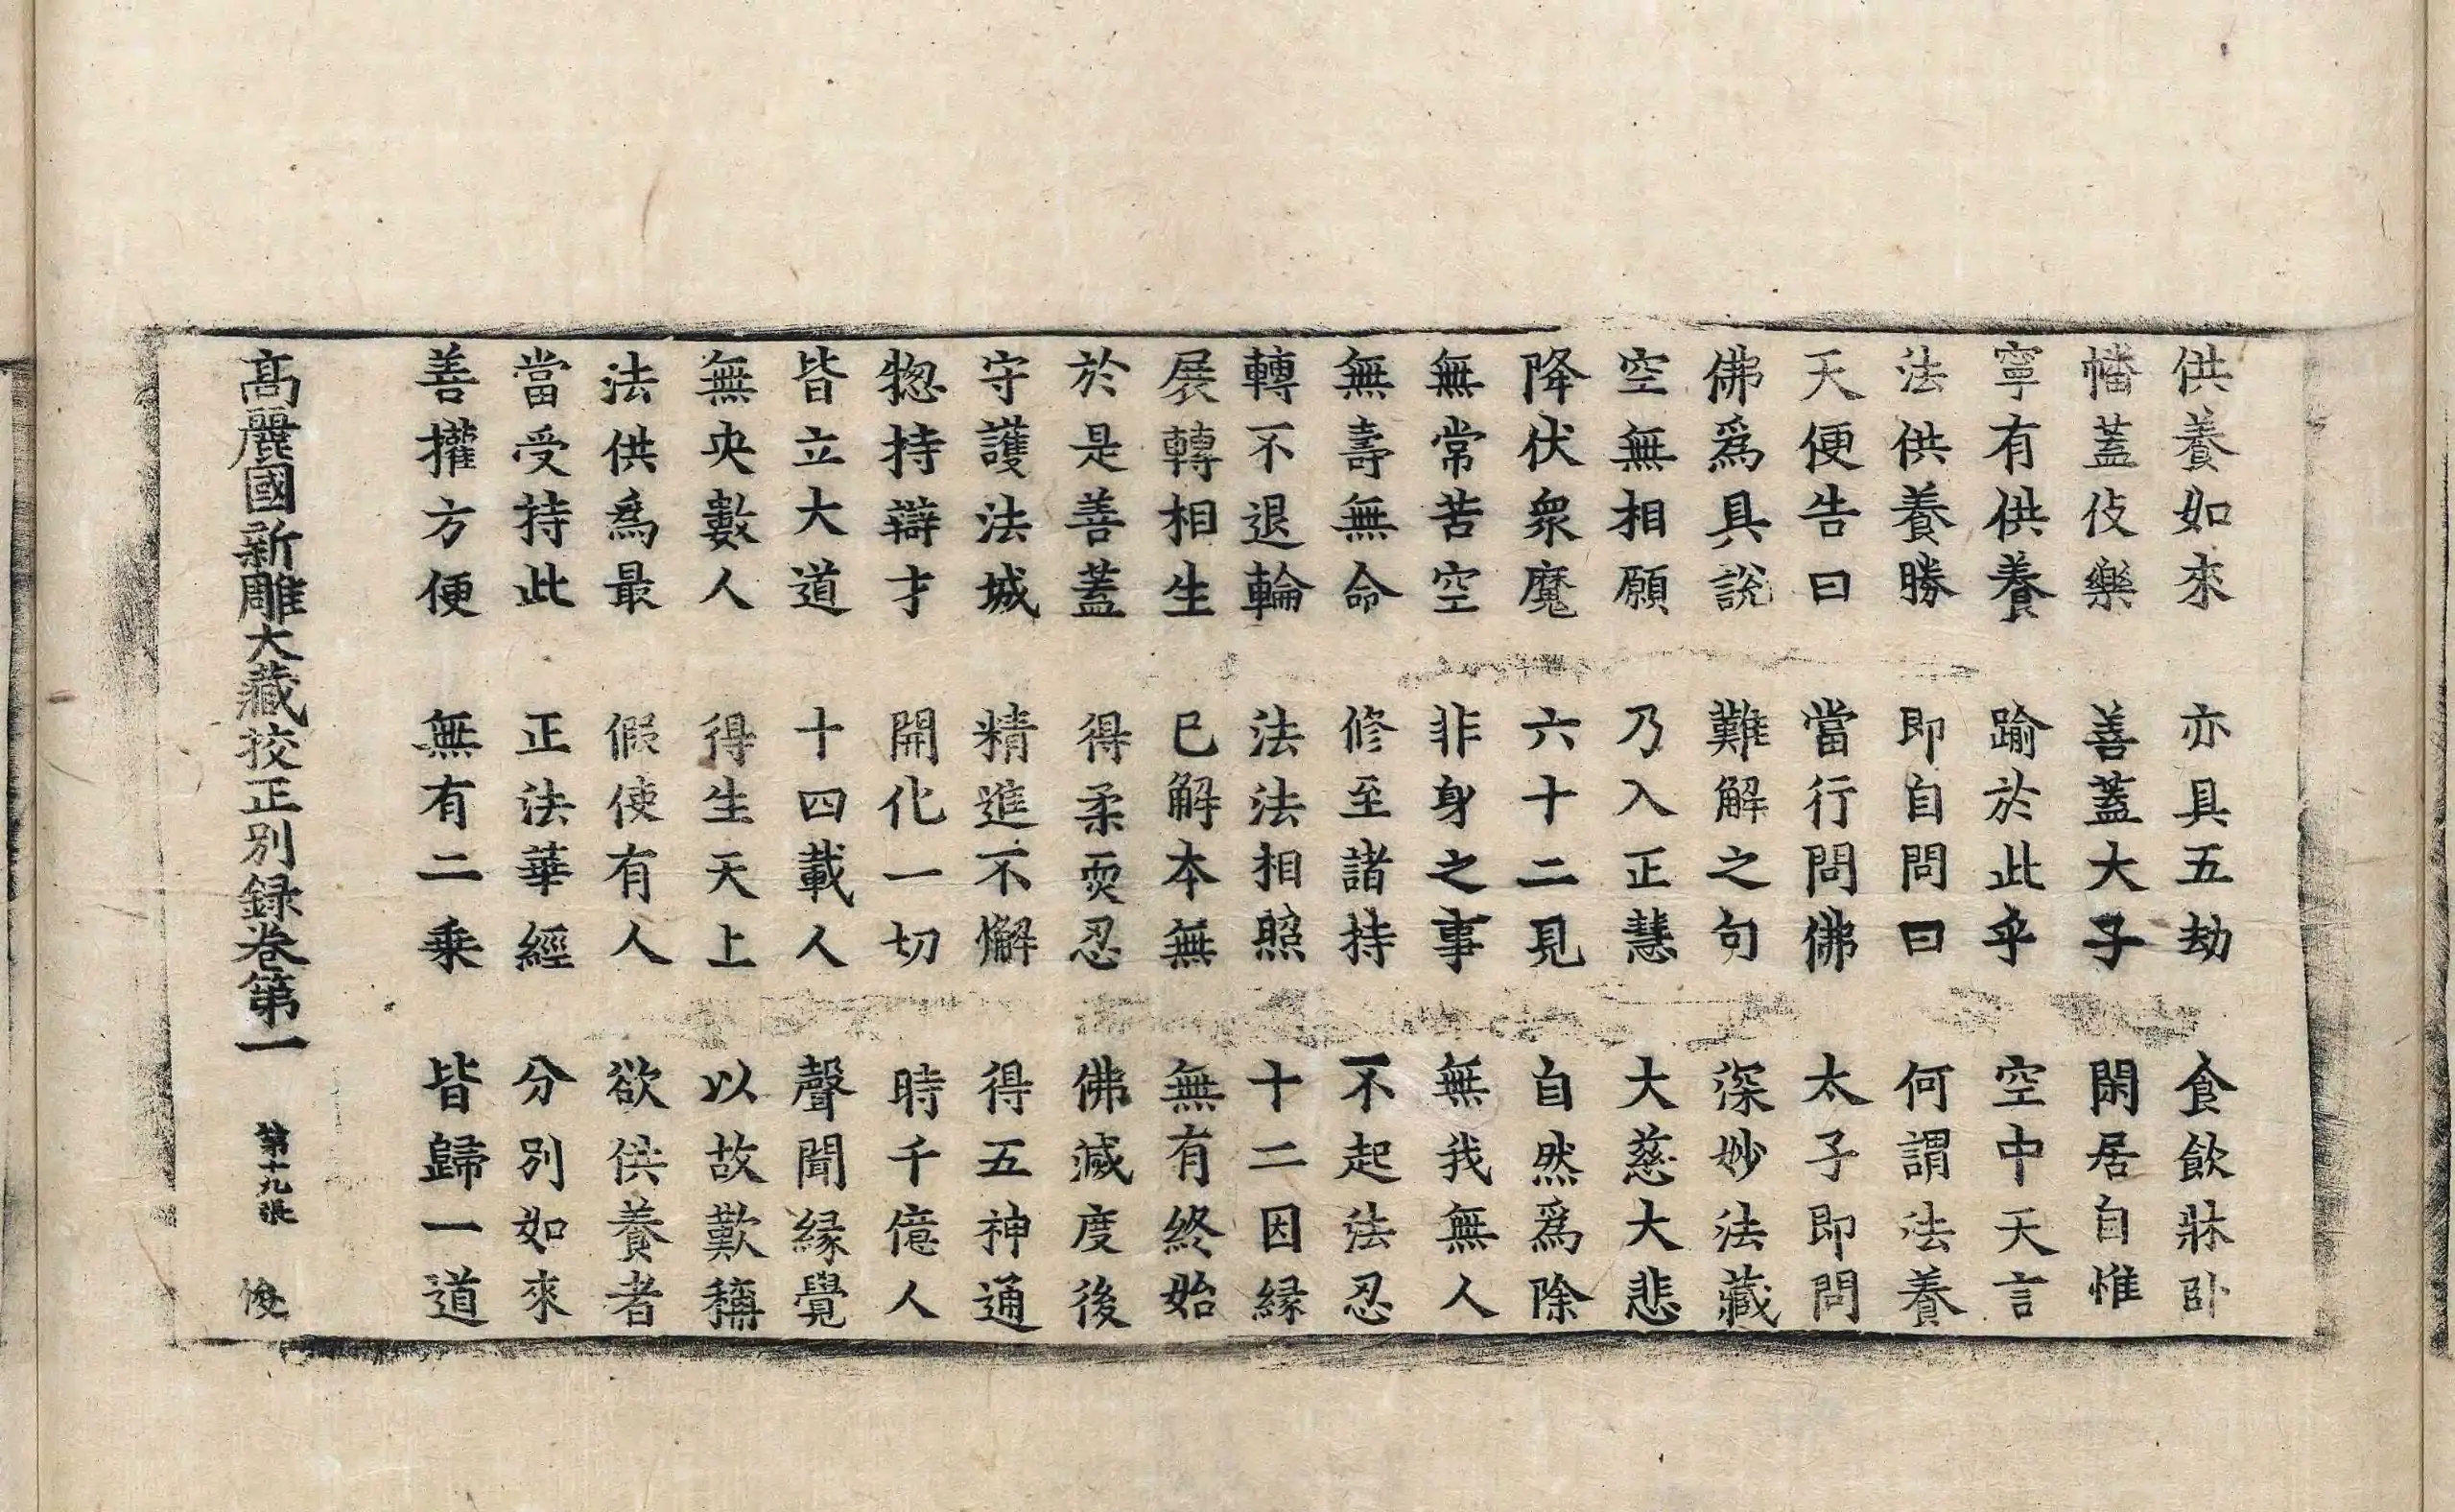 供養如來　亦具五劫　食飲牀卧
幡蓋伎樂　善蓋大子　閑居自惟
寧有供養　踰於此乎　空中天言
法供養勝　即自問曰　何謂法養
天便告曰　當行問佛　太子即問
佛爲具說　難解之句　深妙法藏
空無相願　乃入正慧　大慈大悲
降伏衆魔　六十二見　自然爲除
無常苦空　非身之事　無我無人
無壽無命　修至諸持　不起法忍
轉不退輪　法法相照　十二因縁
展轉相生　已解本無　無有終始
於是善蓋　得柔耎忍　佛滅度後
守護法城　精進不懈　得五神通
惣持辯才　開化一切　時千億人
皆立大道　十四載人　聲聞縁覺
無央數人　得生天上　以故歎稱
法供爲最　假使有人　欲供養者
當受持此　正法華經　分別如來
善權方便　無有二乗　皆歸一道
髙麗國新雕大藏挍正別録卷第一　第十九張　俊